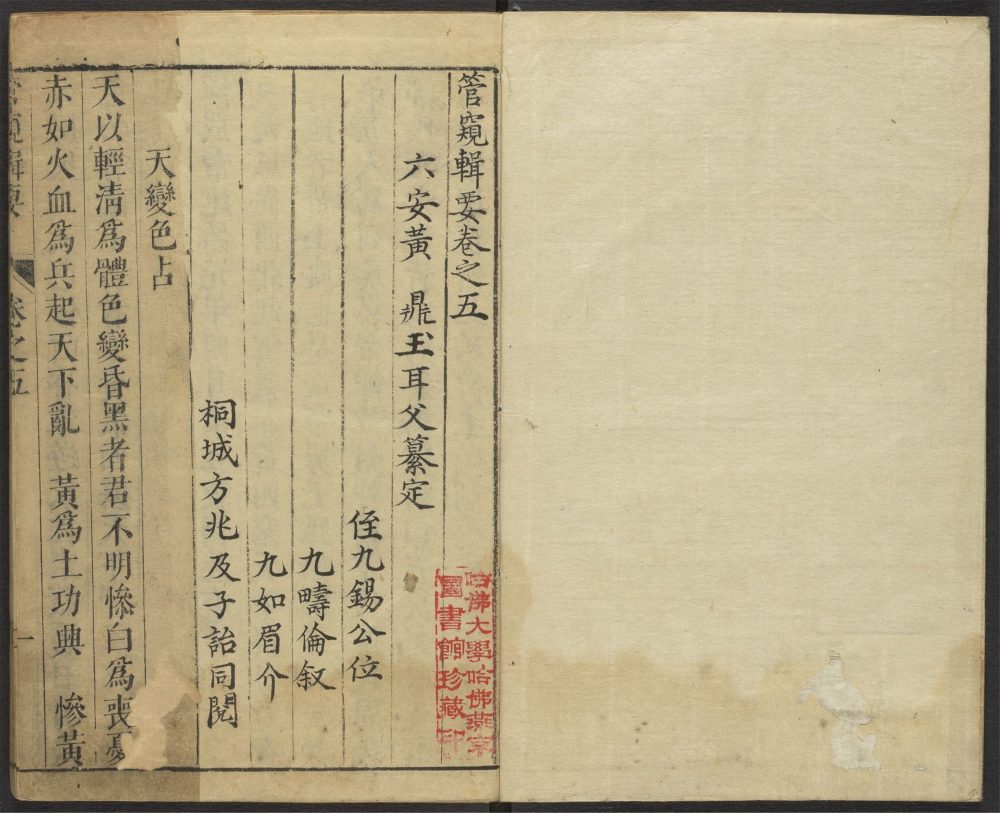 管窺輯要卷之五
六安黃 鼎玉耳父纂定
侄九錫公位
九疇倫敘
九如眉介
桐城方兆及子詒同閱
天變色占
天以輕清爲體色變昏黑者君不明慘白爲喪憂
赤如火血爲兵起天下亂 黃爲土功興 慘黃
管窺輯要 卷之五 一
哈佛大學哈佛燕京
圖書館珍藏印